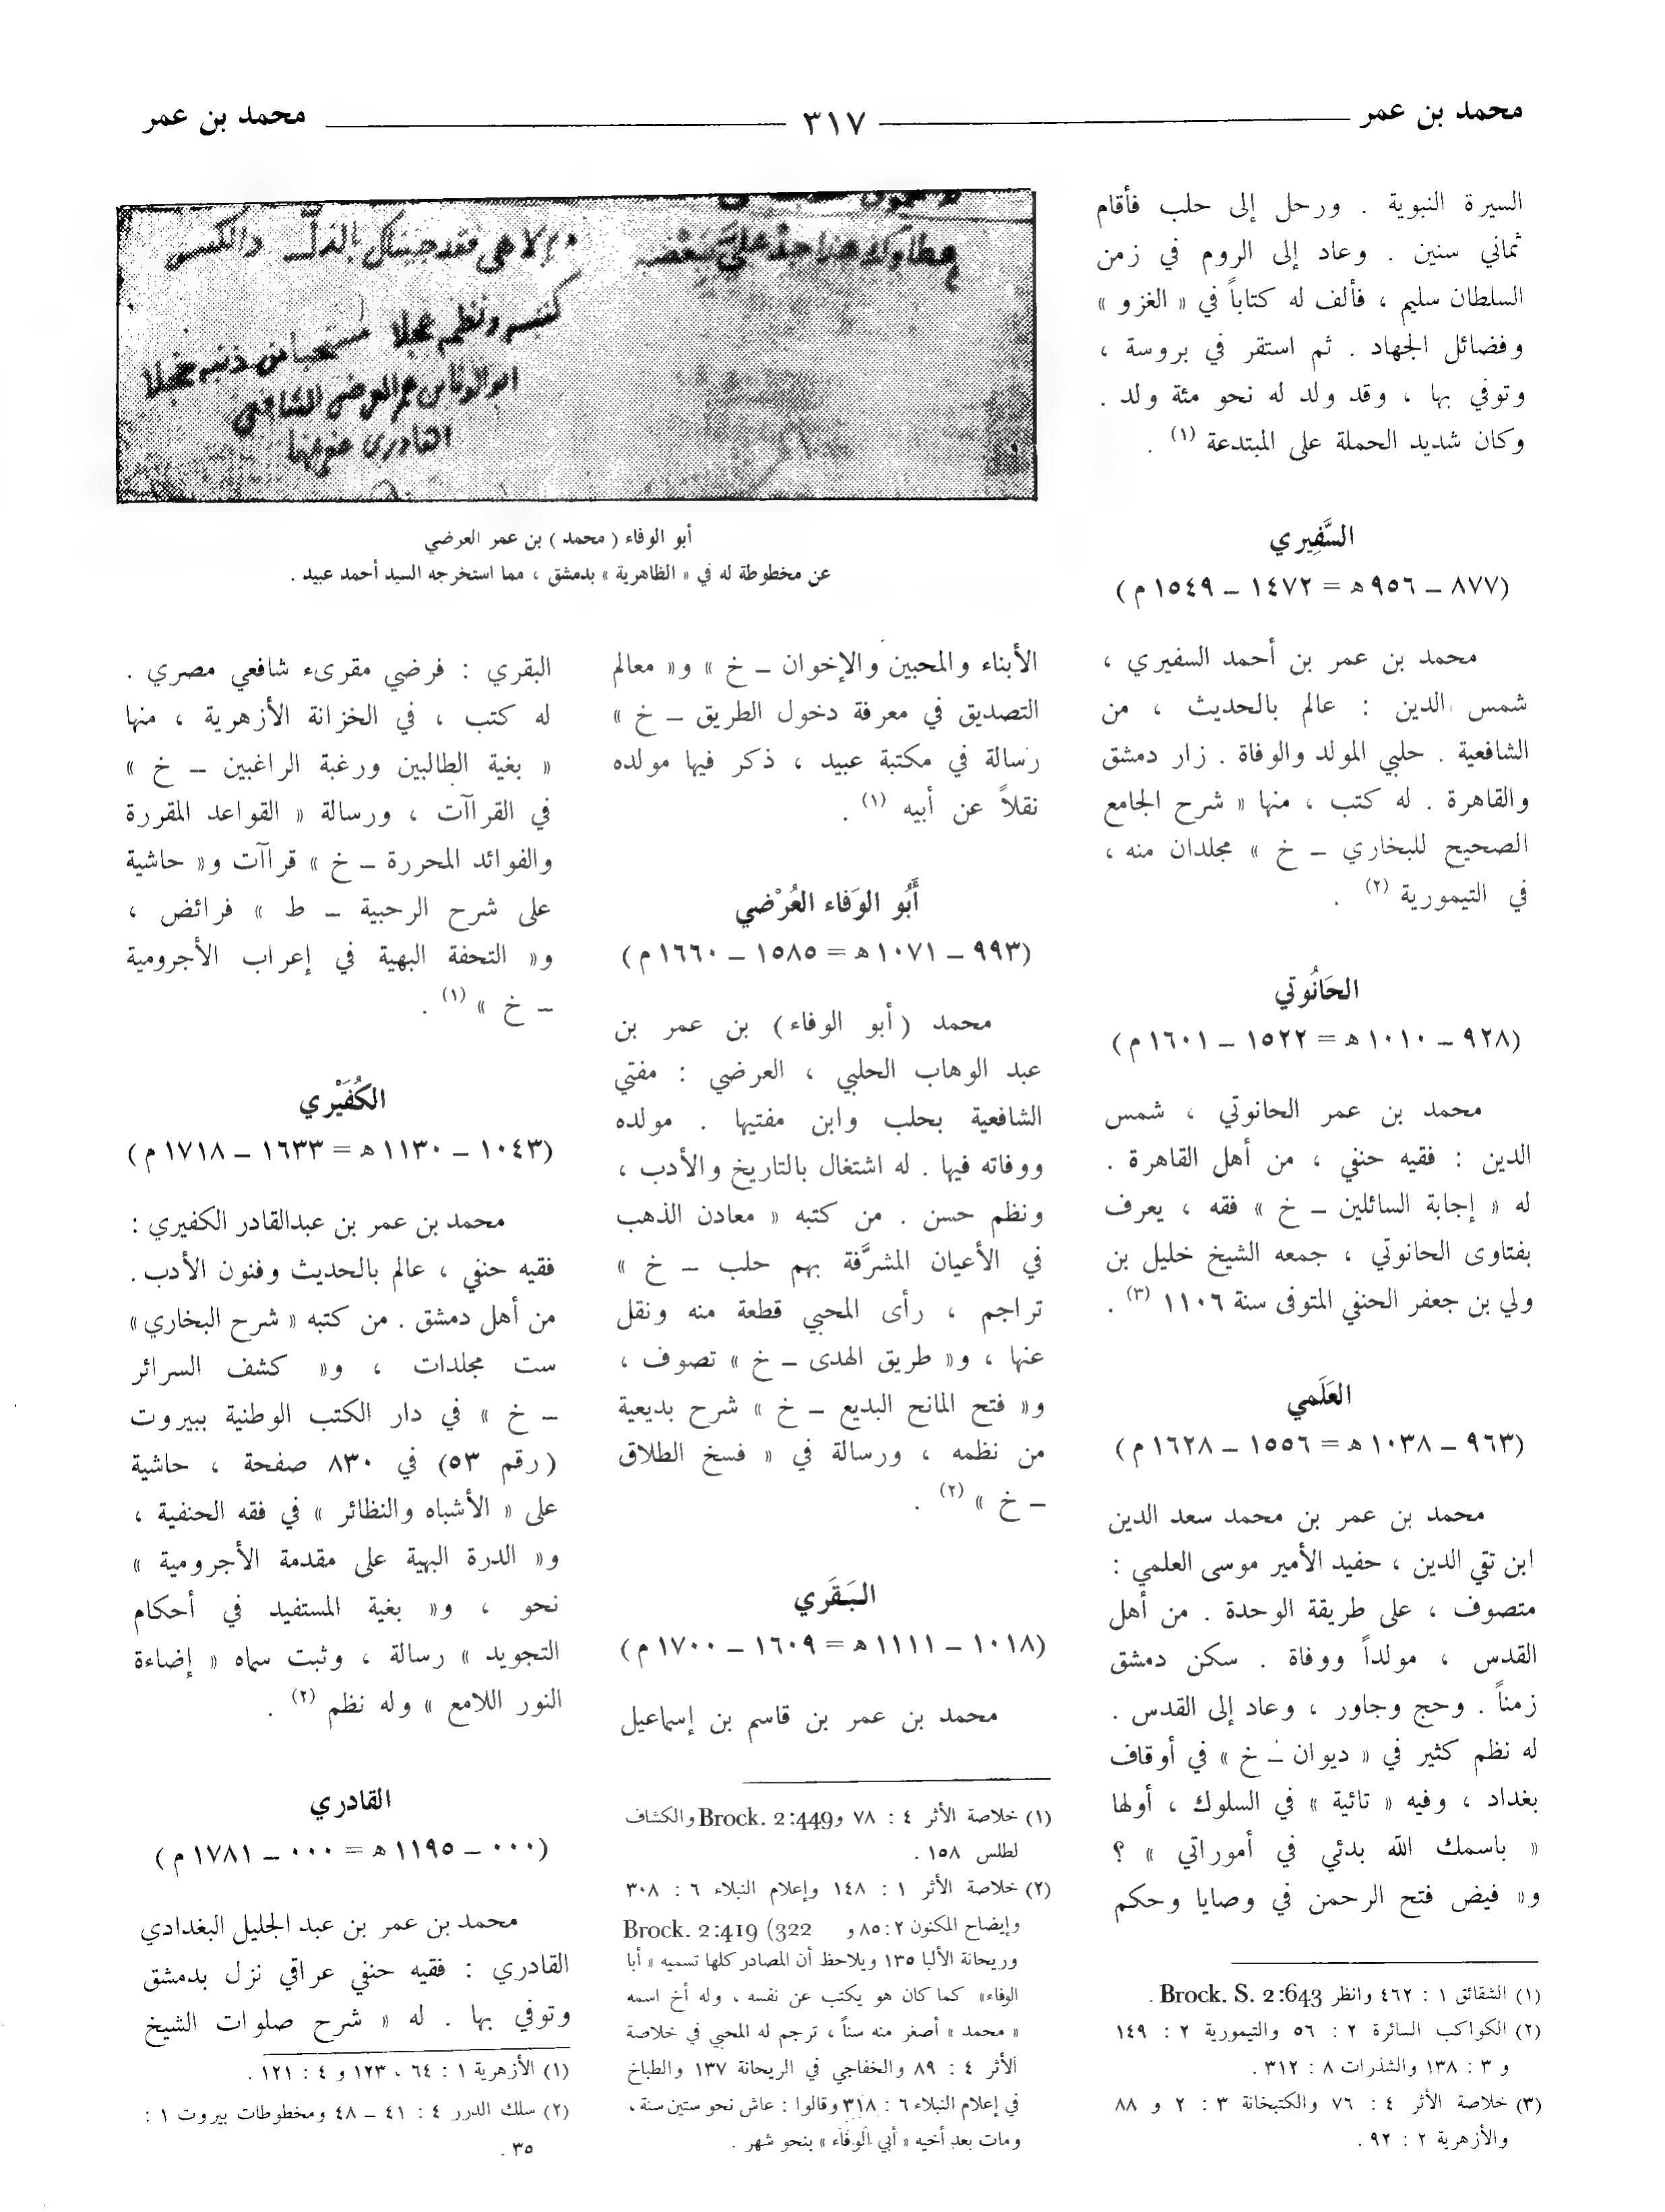 محمد بن عمر
٣١٧
محمد بن عمر
السيرة النبوية . ورحل إلى حلب فأقام
ثماني سنين . وعاد إلى الروم في زمن
السلطان سليم ، فألف له كتاباً في « الغزو »
وفضائل الجهاد . ثم استقر في بروسة ،
وتوفي بها ، وقد ولد له نحو مئة ولد .
وكان شديد الحملة على المبتدعة (١) .
السَّفِيري
(٨٧٧ ــ ٩٥٦ ه = ١٤٧٢ ــ ١٥٤٩ م )
محمد بن عمر بن أحمد السفيري ،
شمس الدين : عالم بالحديث ، من
الشافعية . حلبي المولد والوفاة . زار دمشق
والقاهرة . له كتب ، منها « شرح الجامع
الصحيح للبخاري ــ خ » مجلدان منه ،
في التيمورية (٢) .
الحَانُوتي
(٩٢٨ ــ ١٠١٠ ه = ١٥٢٢ ــ ١٦٠١ م )
محمد بن عمر الحانوتي ، شمس
الدين : فقيه حنفي ، من أهل القاهرة .
له « إجابة السائلين ــ خ » فقه ، يعرف
بفتاوى الحانوتي ، جمعه الشيخ خليل بن
ولي بن جعفر الحنفي المتوفى سنة ١١٠٦ (٣) .
العَلَمي
(٩٦٣ ــ ١٠٣٨ ه = ١٥٥٦ ــ ١٦٢٨ م )
محمد بن عمر بن محمد سعد الدين
ابن تقي الدين ، حفيد الأمير موسى العلمي :
متصوف ، على طريقة الوحدة . من أهل
القدس ، مولداً ووفاة . سكن دمشق
زمناً . وحج وجاور ، وعاد إلى القدس .
له نظم كثير في « ديوان ــ خ » في أوقاف
بغداد ، وفيه « تائية » في السلوك ، أولها
« باسمك الله بدئي في أموراتي » ؟
و« فيض فتح الرحمن في وصايا وحكم
(١) الشقائق ١ : ٤٦٢ وانظر Brock. S. 2:643 .
(٢) الكواكب السائرة ٢ : ٥٦ والتيمورية ٢ : ١٤٩
و ٣ : ١٣٨ والشذرات ٨ : ٣١٢ .
(٣) خلاصة الأثر ٤ : ٧٦ والكتبخانة ٣ : ٢ و ٨٨
والأزهرية ٢ : ٩٢ .
أبو الوفاء ( محمد ) بن عمر العرضي
عن مخطوطة له في « الظاهرية » بدمشق ، مما استخرجه السيد أحمد عبيد .
الأبناء والمحبين والإخوان ــ خ » و« معالم
التصديق في معرفة دخول الطريق ــ خ »
رسالة في مكتبة عبيد ، ذكر فيها مولده
نقلاً عن أبيه (١) .
أَبُو الوَفاء العُرْضي
(٩٩٣ ــ ١٠٧١ ه = ١٥٨٥ ــ ١٦٦٠ م )
محمد ( أبو الوفاء ) بن عمر بن
عبد الوهاب الحلبي ، العرضي : مفتي
الشافعية بحلب وابن مفتيها . مولده
ووفاته فيها . له اشتغال بالتاريخ والأدب ،
ونظم حسن . من كتبه « معادن الذهب
في الأعيان المشرَّفة بهم حلب ــ خ »
تراجم ، رأى المحبي قطعة منه ونقل
عنها ، و« طريق الهدى ــ خ » تصوف ،
و« فتح المانح البديع ــ خ » شرح بديعية
من نظمه ، ورسالة في « فسخ الطلاق
ــ خ » (٢) .
البَقَري
(١٠١٨ ــ ١١١١ ه = ١٦٠٩ ــ ١٧٠٠ م )
محمد بن عمر بن قاسم بن إسماعيل
(١) خلاصة الأثر ٤ : ٧٨ وBrock. 2:449 والكشاف
لطلس ١٥٨ .
(٢) خلاصة الأثر ١ : ١٤٨ وإعلام النبلاء ٦ : ٣٠٨
وإيضاح المكنون ٢ : ٨٥ و Brock. 2:419 (322
وريحانة الألبا ١٣٥ ويلاحظ أن المصادر كلها تسميه « أبا
الوفاء» كما كان هو يكتب عن نفسه ، وله أخ اسمه
« محمد » أصغر منه سناً ، ترجم له المحبي في خلاصة
الأثر ٤ : ٨٩ والخفاجي في الريحانة ١٣٧ والطباخ
في إعلام النبلاء ٦ : ٣١٨ وقالوا : عاش نحو ستين سنة ،
ومات بعد أخيه « أبي الوفاء » بنحو شهر .
البقري : فرضي مقرىء شافعي مصري .
له كتب ، في الخزانة الأزهرية ، منها
« بغية الطالبين ورغبة الراغبين ــ خ »
في القراآت ، ورسالة « القواعد المقررة
والفوائد المحررة ــ خ » قراآت و« حاشية
على شرح الرحبية ــ ط » فرائض ،
و« التحفة البهية في إعراب الأجرومية
ــ خ » (١) .
الكُفَيْري
(١٠٤٣ ــ ١١٣٠ ه = ١٦٣٣ ــ ١٧١٨ م )
محمد بن عمر بن عبدالقادر الكفيري :
فقيه حنفي ، عالم بالحديث وفنون الأدب .
من أهل دمشق . من كتبه « شرح البخاري»
ست مجلدات ، و« كشف السرائر
ــ خ » في دار الكتب الوطنية ببيروت
( رقم ٥٣ ) في ٨٣٠ صفحة ، حاشية
على « الأشباه والنظائر » في فقه الحنفية ،
و« الدرة البهية على مقدمة الأجرومية »
نحو ، و« بغية المستفيد في أحكام
التجويد » رسالة ، وثبت سماه « إضاءة
النور اللامع » وله نظم (٢) .
القادري
(٠٠٠ ــ ١١٩٥ ه = ٠٠٠ ــ ١٧٨١ م )
محمد بن عمر بن عبد الجليل البغدادي
القادري : فقيه حنفي عراقي نزل بدمشق
وتوفي بها . له « شرح صلوات الشيخ
(١) الأزهرية ١ : ٦٤ ، ١٢٣ و ٤ : ١٢١ .
(٢) سلك الدرر ٤ : ٤١ ــ ٤٨ ومخطوطات بيروت ١ :
٣٥ .